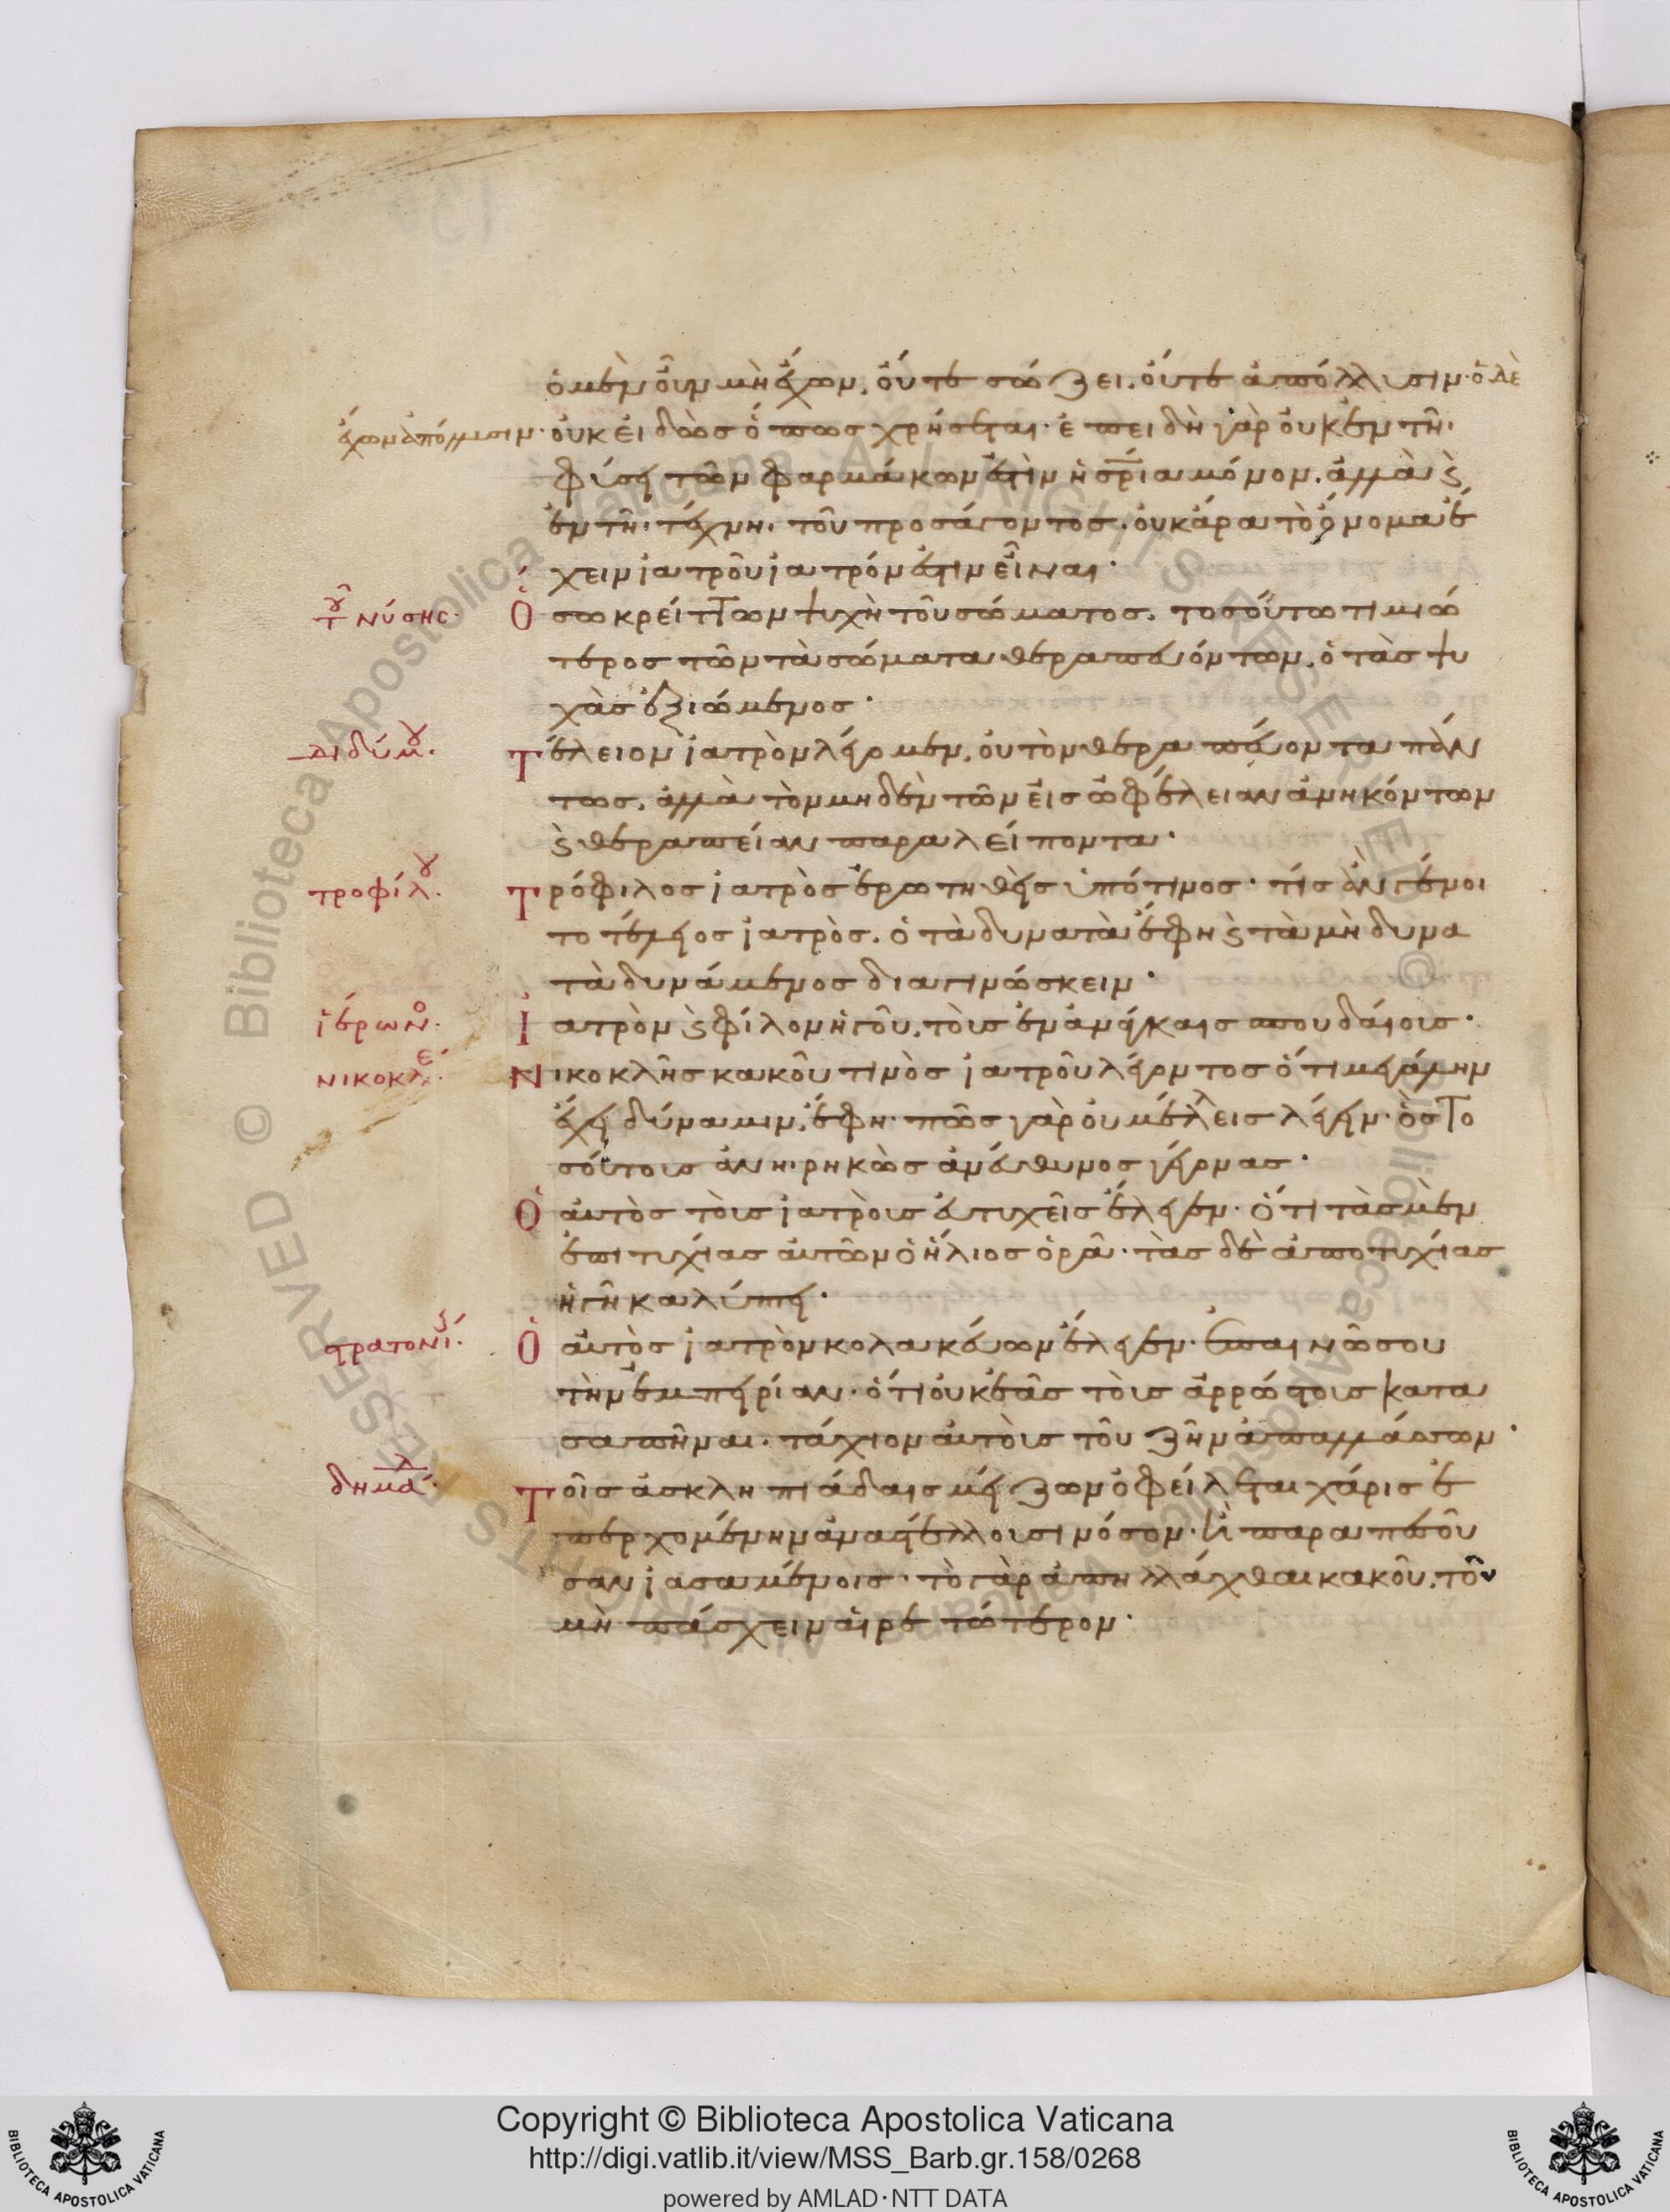 ὁ μὲν οὖν μὴ ἔχων, οὔτε σώζει. οὔτε ἀπόλλυσιν· ὁ δὲ
ἔχων ἀπόλλυσιν· οὐκ εἰδὼς ὅπως χρήσεται· ἐπειδὴ γὰρ οὐκ ἐν τῆ
φύσει τῶν φαρμάκων ἐστὶν ἡ σρία μόνον, ἀλλὰ ϗ
ἐν τῆ τέχνη τοῦ προσάγοντος. οὐκ ἄρα τὸ ὄνομα ἔ
χειν ἰατροῦ ἰατρόν ἐστιν εἶναι·
τ νύσης·
Ὅσω κρείττων ψυχὴ τοῦ σώματος. τοσούτω τιμιώ
τερος τῶν τὰ σώματα θεραπευόντων, ὁ τὰς ψυ
χὰς ἐξιώμενος·
διδύμου·
Τέλειον ἰατρὸν λέγομεν, οὐ τὸν θεραπεύοντα πάν
τως, ἀλλὰ τὸν μηδὲν τῶν εἰς ὠφέλειαν ἀνηκόντων
ϗ θεραπείαν παραλείποντα·
τροφίλου·
Τρόφιλος ἰατρὸς ἐρωτηθεὶς ὑπό τινος· τίς ἂν γένοι
το τέλειος ἰατρὸς. ὁ τὰ δυνατὰ ἔφη ϗ τὰ μὴ δυνα
τὰ δυνάμενος διαγινώσκειν·
ἱέρων·
Ἰατρὸν ϗ φίλον ἡγοῦ, τοῖς ἐν ἀνάγκαις σπουδαίοις·
νικοκλέ·
Νικοκλῆς κακοῦ τινὸς ἰατροῦ λέγοντος ὅτι μεγάλην
ἔχει δύναμιν, ἔφη· πῶς γὰρ οὐ μέλλεις λέγειν· ὃς το
σούτους ἀνηιρηκὼς ἀνεύθυνος γέγονας·
Ὁ αὐτὸς τοὺς ἰατροὺς εὐτυχεῖς ἔλεγεν· ὅτι τὰς μὲν
ἐπιτυχίας αὐτῶν ὁ ἥλιος ὁρᾶ· τὰς δὲ ἀποτυχίας
ἡ γῆ καλύπτει·
στρατονί·
Ὁ αὐτὸς ἰατρὸν κολακεύων ἔλεγεν· ἐπαινῶ σου
τὴν ἐμπειρίαν· ὅτι οὐκ ἐᾶς τοὺς ἀρρώστους κατα
σαπῆναι· τάχιον αὐτοὺς τοῦ ζῆν ἀπαλλάττων·
δημά·
Τοῖς ἀσκληπιάδαις μείζων ὀφείλεται χάρις ἐ
περχομένην ἀναστέλλουσι νόσον· ἢ παραπεσοῦ
σαν ἰασαμένοις· τὸ γὰρ ἀπηλλάχθαι κακοῦ, τοῦ
μὴ πάσχειν αἱρετώτερον·
Copyright © Biblioteca Apostolica Vaticana
http://digi.vatlib.it/view/MSS_Barb.gr.158/0268
powered by AMLAD·NTT DATA